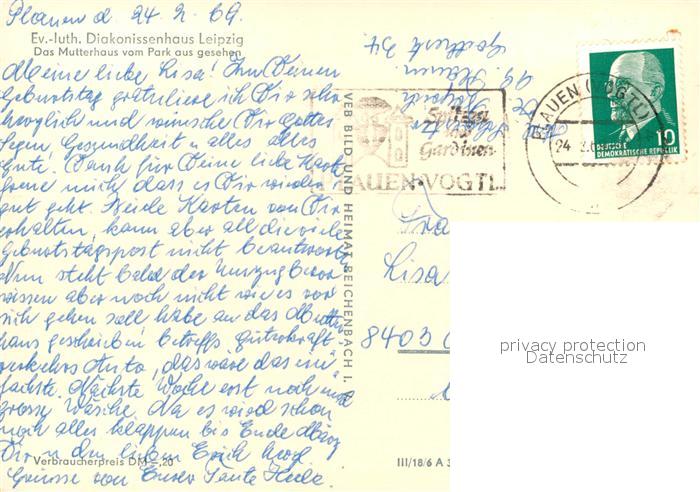 Plauen d. 24. 2. 69.
Ev.-luth. Diakonissenhaus Leipzig
Das Mutterhaus vom Park aus gesehen
Meine liebe Lisa! Zu Deinem
Geburtstag gratuliere ich Dir sehr
herzlich und wünsche Dir Gottes
Segen, Gesundheit u. alles alles
Gute. Dank für Deine liebe Karte
freue mich, dass es Dir wieder
gut geht. Beide Karten von Dir
erhalten, kann aber all die viele
Geburtstagspost nicht beantworten
Nun steht bald der Umzug bevor
wissen aber noch nicht wie es vor
sich gehen soll habe an das Mutter
haus geschrieben betreffs Güterkraft-
verkehrs Auto, das wäre das ein
fachste. Nächste Woche erst noch mal
grosse Wäsche. Na es wird schon
noch alles klappen bis Ende März
Dir u. den lieben Erich herzl.
Grüsse von Eurer Tante
Verbraucherpreis DM -,20
VEB BILD UND HEIMAT REICHENBACH I. V.
III/18/6 A 3
Spitzen
und
Gardinen
PLAUEN-VOGTL.
PLAUEN (VOGTL)
24. 2.
10
DEUTSCHE
DEMOKRATISCHE REPUBLIK
Lisa
8403
privacy protection
Datenschutz